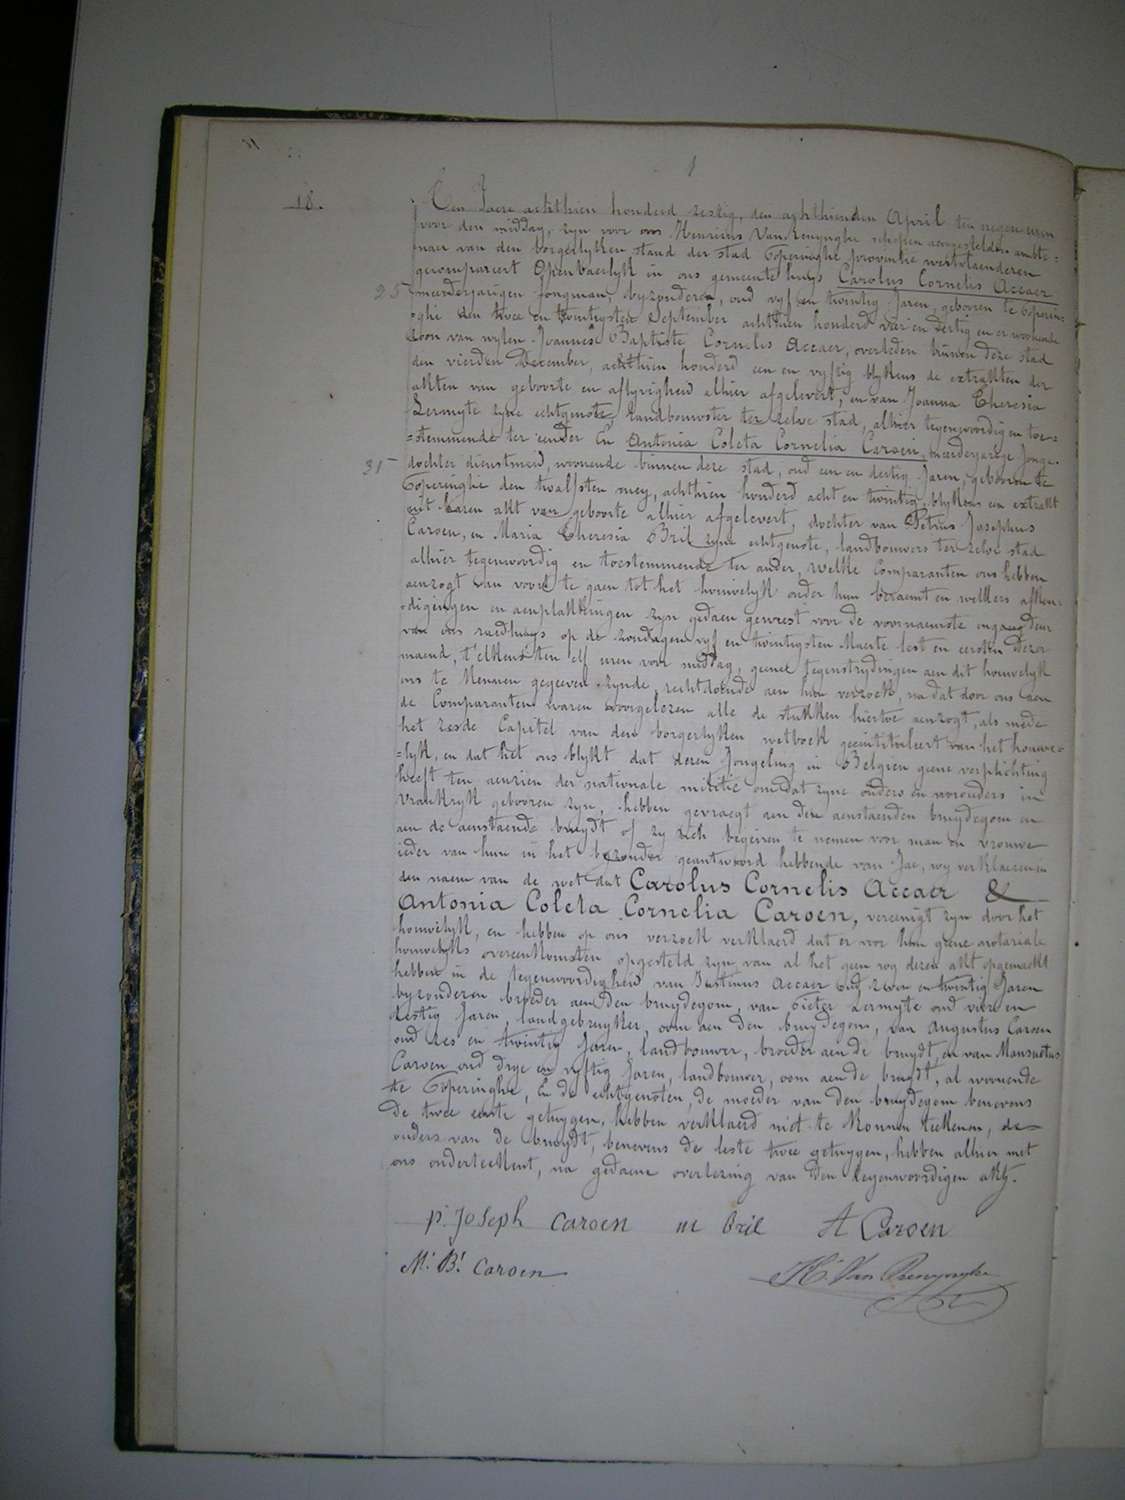 1
18.
Ten Jaere achthien honderd zestig, den achthienden April ten negen uren
voor den middag, zyn voor ons Henricus Van Renynghe schepen aengestelden ambte=
naer van den borgerlyken stand der stad Poperinghe provintie westvlaenderen
gecompareert openbaerlyk in ons gemeente huys Carolus Cornelis Accaer
25 meerderjarigen jongman, byzonderen, oud vyf en twintig Jaren, geboren te Poperin=
=ghe den twee en twintigsten September achthien honderd vier en dertig en er woonende
zoon van wylen Joannes Baptiste Cornelis Accaer, overleden binnen deze stad
den vierden December, achthien honderd een en vyftig blykens de extrakten der
akten van geboorte en aflyvigheid alhier afgelevert, en van Joanna Theresia
Lermyte zyne echtgenote, landbouwster ter zelve stad, alhier tegenwoordig en toe=
=stemmende ter eender En Antonia Coleta Cornelia Caroen, meerderjarege jonge
31 dochter dienstmeid, woonende binnen deze stad, oud een en dertig Jaren, geboren te
Poperinghe den twalfsten mey, achthien honderd acht en twintig, blykens een extrakt
uit haren akt van geboorte alhier afgelevert, dochter van Petrus Josephus
Caroen, en Maria Theresia Bril zyne echtgenote, landbouwers ter zelve stad
alhier tegenwoordig en toestemmende ter ander, Welke Comparanten ons hebben
aenzogt van voort te gaen tot het houwelyk onder hun beraemt en welkers afkon=
=digingen en aenplakkingen zyn gedaen geweest voor de voornaemste ingang deur
van ons raedhuys op de zondagen vyf en twintigsten Maerte lest en eersten dezer
maend, t'elkens ten elf uren voor middag, geene tegenstrydingen aen dit houwelyk
ons te kennen gegeeven zynde, rechtdoende aen hun verzoek, na dat door ons aen
de Comparanten waren voorgelezen alle de stukken hiertoe aenzogt, als mede
het zesde Capitel van den borgerlyken wetboek geintituleert van het houwe=
=lyk, en dat het ons blykt dat dezen Jongeling in Belgien geene verplichting
heeft ten aenzien der nationale militie omdat zyne ouders en voorouders in
Vrankryk geboren zyn, hebben gevraegt aen den aenstaenden bruydegom en
aen de aenstaende bruydt of zy zich begeiren te nemen voor man en vrouwe
ieder van hun in het byzonder geantwoord hebbende van Jae, wy verklaeren in
den naem van de wet dat Carolus Cornelis Accaer &
Antonia Coleta Cornelia Caroen, vereenigt zyn door het
houwelyk, en hebben op ons verzoek verklaerd dat er voor hun geene notariale
houwelyks overeenkomsten opgesteld zyn, van al het geen wy dezen akt opgemaekt
hebben in de tegenwoordigheid van Justinus Accaer oud zeven en twintig Jaren
byzonderen broeder aen den bruydegom, van Pieter Lermyte oud vier en
zestig Jaren, landgebruyker, oom aen den bruydegom, van Augustus Caroen
oud zes en twintig Jaren, landbouwer, broeder aen de bruydt, en van Mansuetus
Caroen oud drye en vyftig Jaren, landbouwer, oom aen de bruydt, al woonende
te Poperinghe, En de echtgenoten, de moeder van den bruydegom benevens
De twee eerste getuygen, hebben verklaerd niet te konnen teekenen, de
ouders van de bruydt, benevens de leste twee getuygen, hebben alhier met
ons onderteekent, na gedaene overlezing van den tegenwoordigen akt.
p. Joseph Caroen m Bril A Caroen
M. B. Caroen H. Van Renynghe